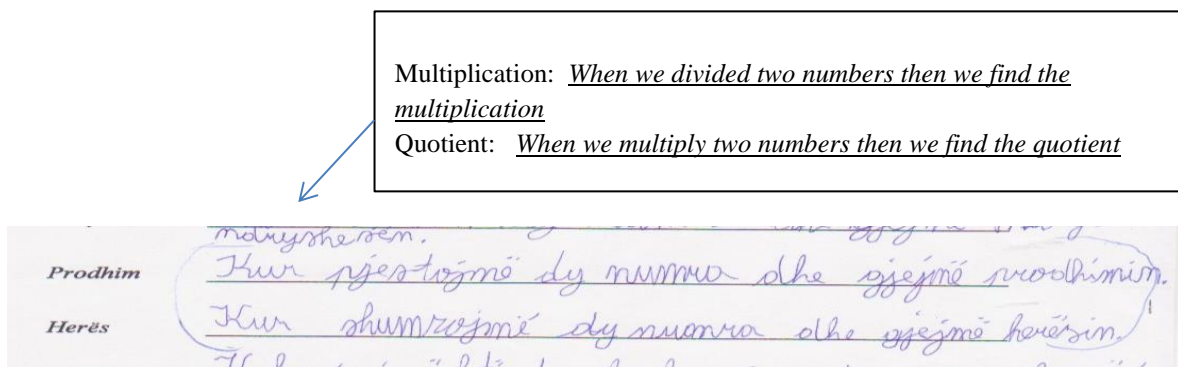 Multiplication: When we divided two numbers then we find the
multiplication
Quotient: When we multiply two numbers then we find the quotient
ndryshesën. gjejmë
Prodhim Kur pjestojmë dy numra dhe gjejmë prodhimin.
Herës Kur shumzojmë dy numra dhe gjejmë herësin.